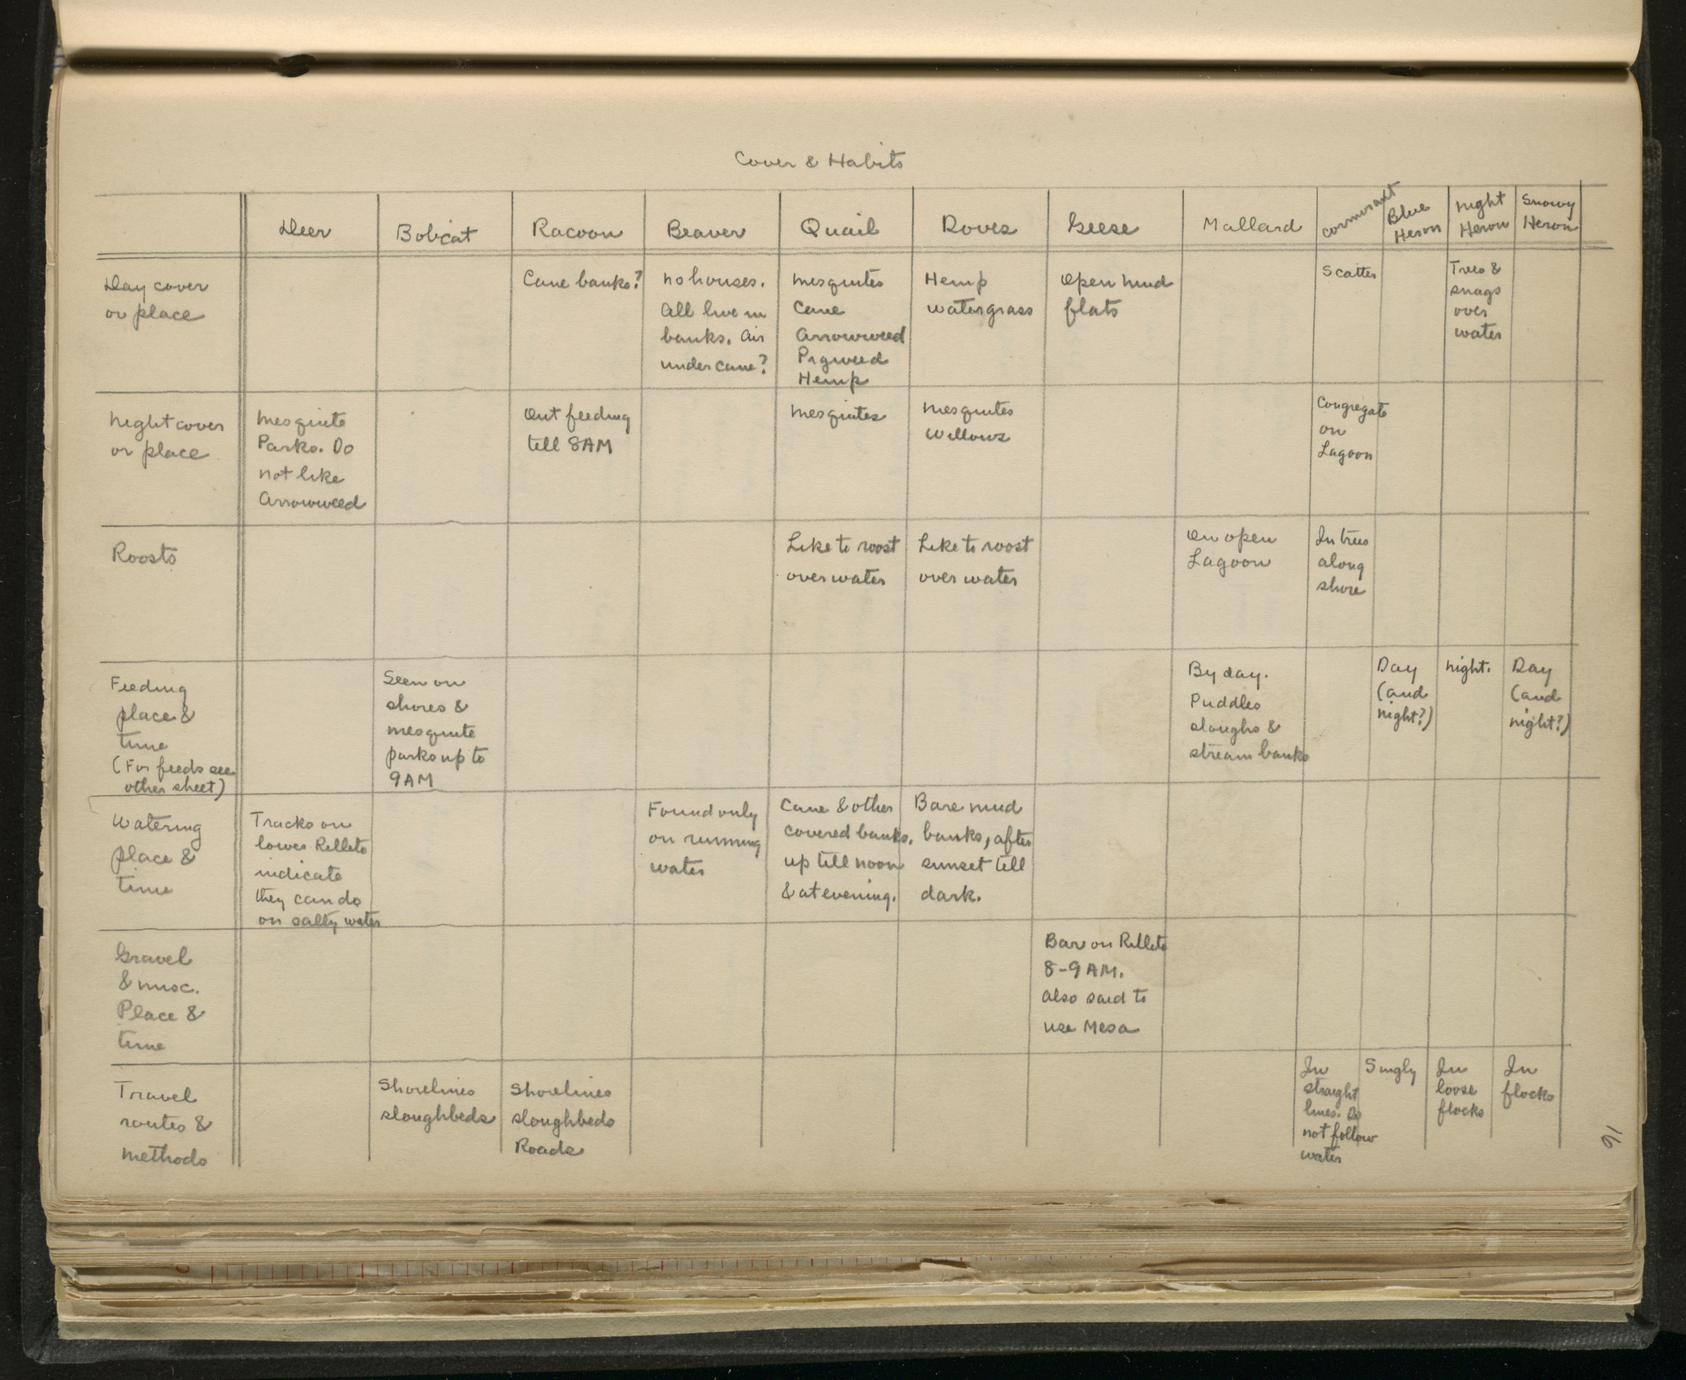 Cover & Habits
Deer
Bobcat
Racoon
Beaver
Quail
Doves
Geese
Mallard
Cormorant
Blue
Heron
Night
Heron
Snowy
Heron
Day cover
or place
Cane banks?
No houses.
All live in
banks. Air
under cane?
Mesquites
Cane
Arrowweed
Pigweed
Hemp
Hemp
watergrass
Open mud
flats
Scatter
Trees &
snags
over
water
Night cover
or place
Mesquite
Parks. Do
not like
Arrowweed
Out feeding
till 8AM
Mesquites
Mesquites
Willows
Congregate
on
Lagoon
Roosts
Like to roost
over water
Like to roost
over water
On open
Lagoon
In trees
along
shore
Feeding
place &
time
(For feeds see
other sheet)
Seen on
shores &
mesquite
parks up to
9AM
By day.
Puddles
sloughs &
stream banks
Day
(and
night?)
Night.
Day
(and
night?)
Watering
place &
time
Tracks on
lower Rillito
indicate
they can do
on salty water
Found only
on running
water
Cane & other
covered banks,
up till noon
& at evening.
Bare mud
banks, after
sunset till
dark.
Gravel
& misc.
Place &
time
Bar on Rillito
8-9 AM.
Also said to
use Mesa
Travel
routes &
methods
Shorelines
sloughbeds
Shorelines
sloughbeds
Roads
In
straight
lines. Do
not follow
water
Singly
In
loose
flocks
In
flocks
16